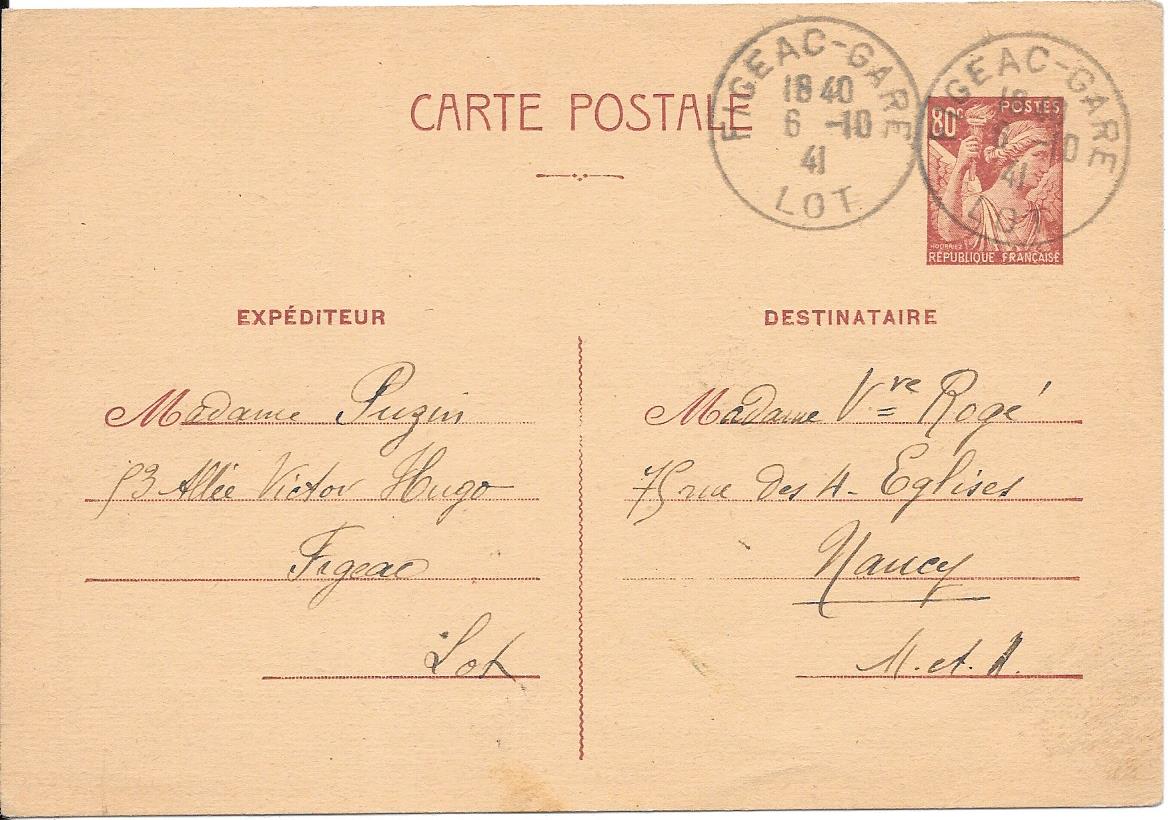 CARTE POSTALE
FIGEAC-GARE
18 40
6 -10
41
LOT
FIGEAC-GARE
18 40
6 -10
41
LOT
80c POSTES
RÉPUBLIQUE FRANÇAISE
EXPÉDITEUR
Madame Puzin
53 Allée Victor Hugo
Figeac
Lot
DESTINATAIRE
Madame Vve Rogé
75 rue des 4 - Eglises
Nancy
M. et